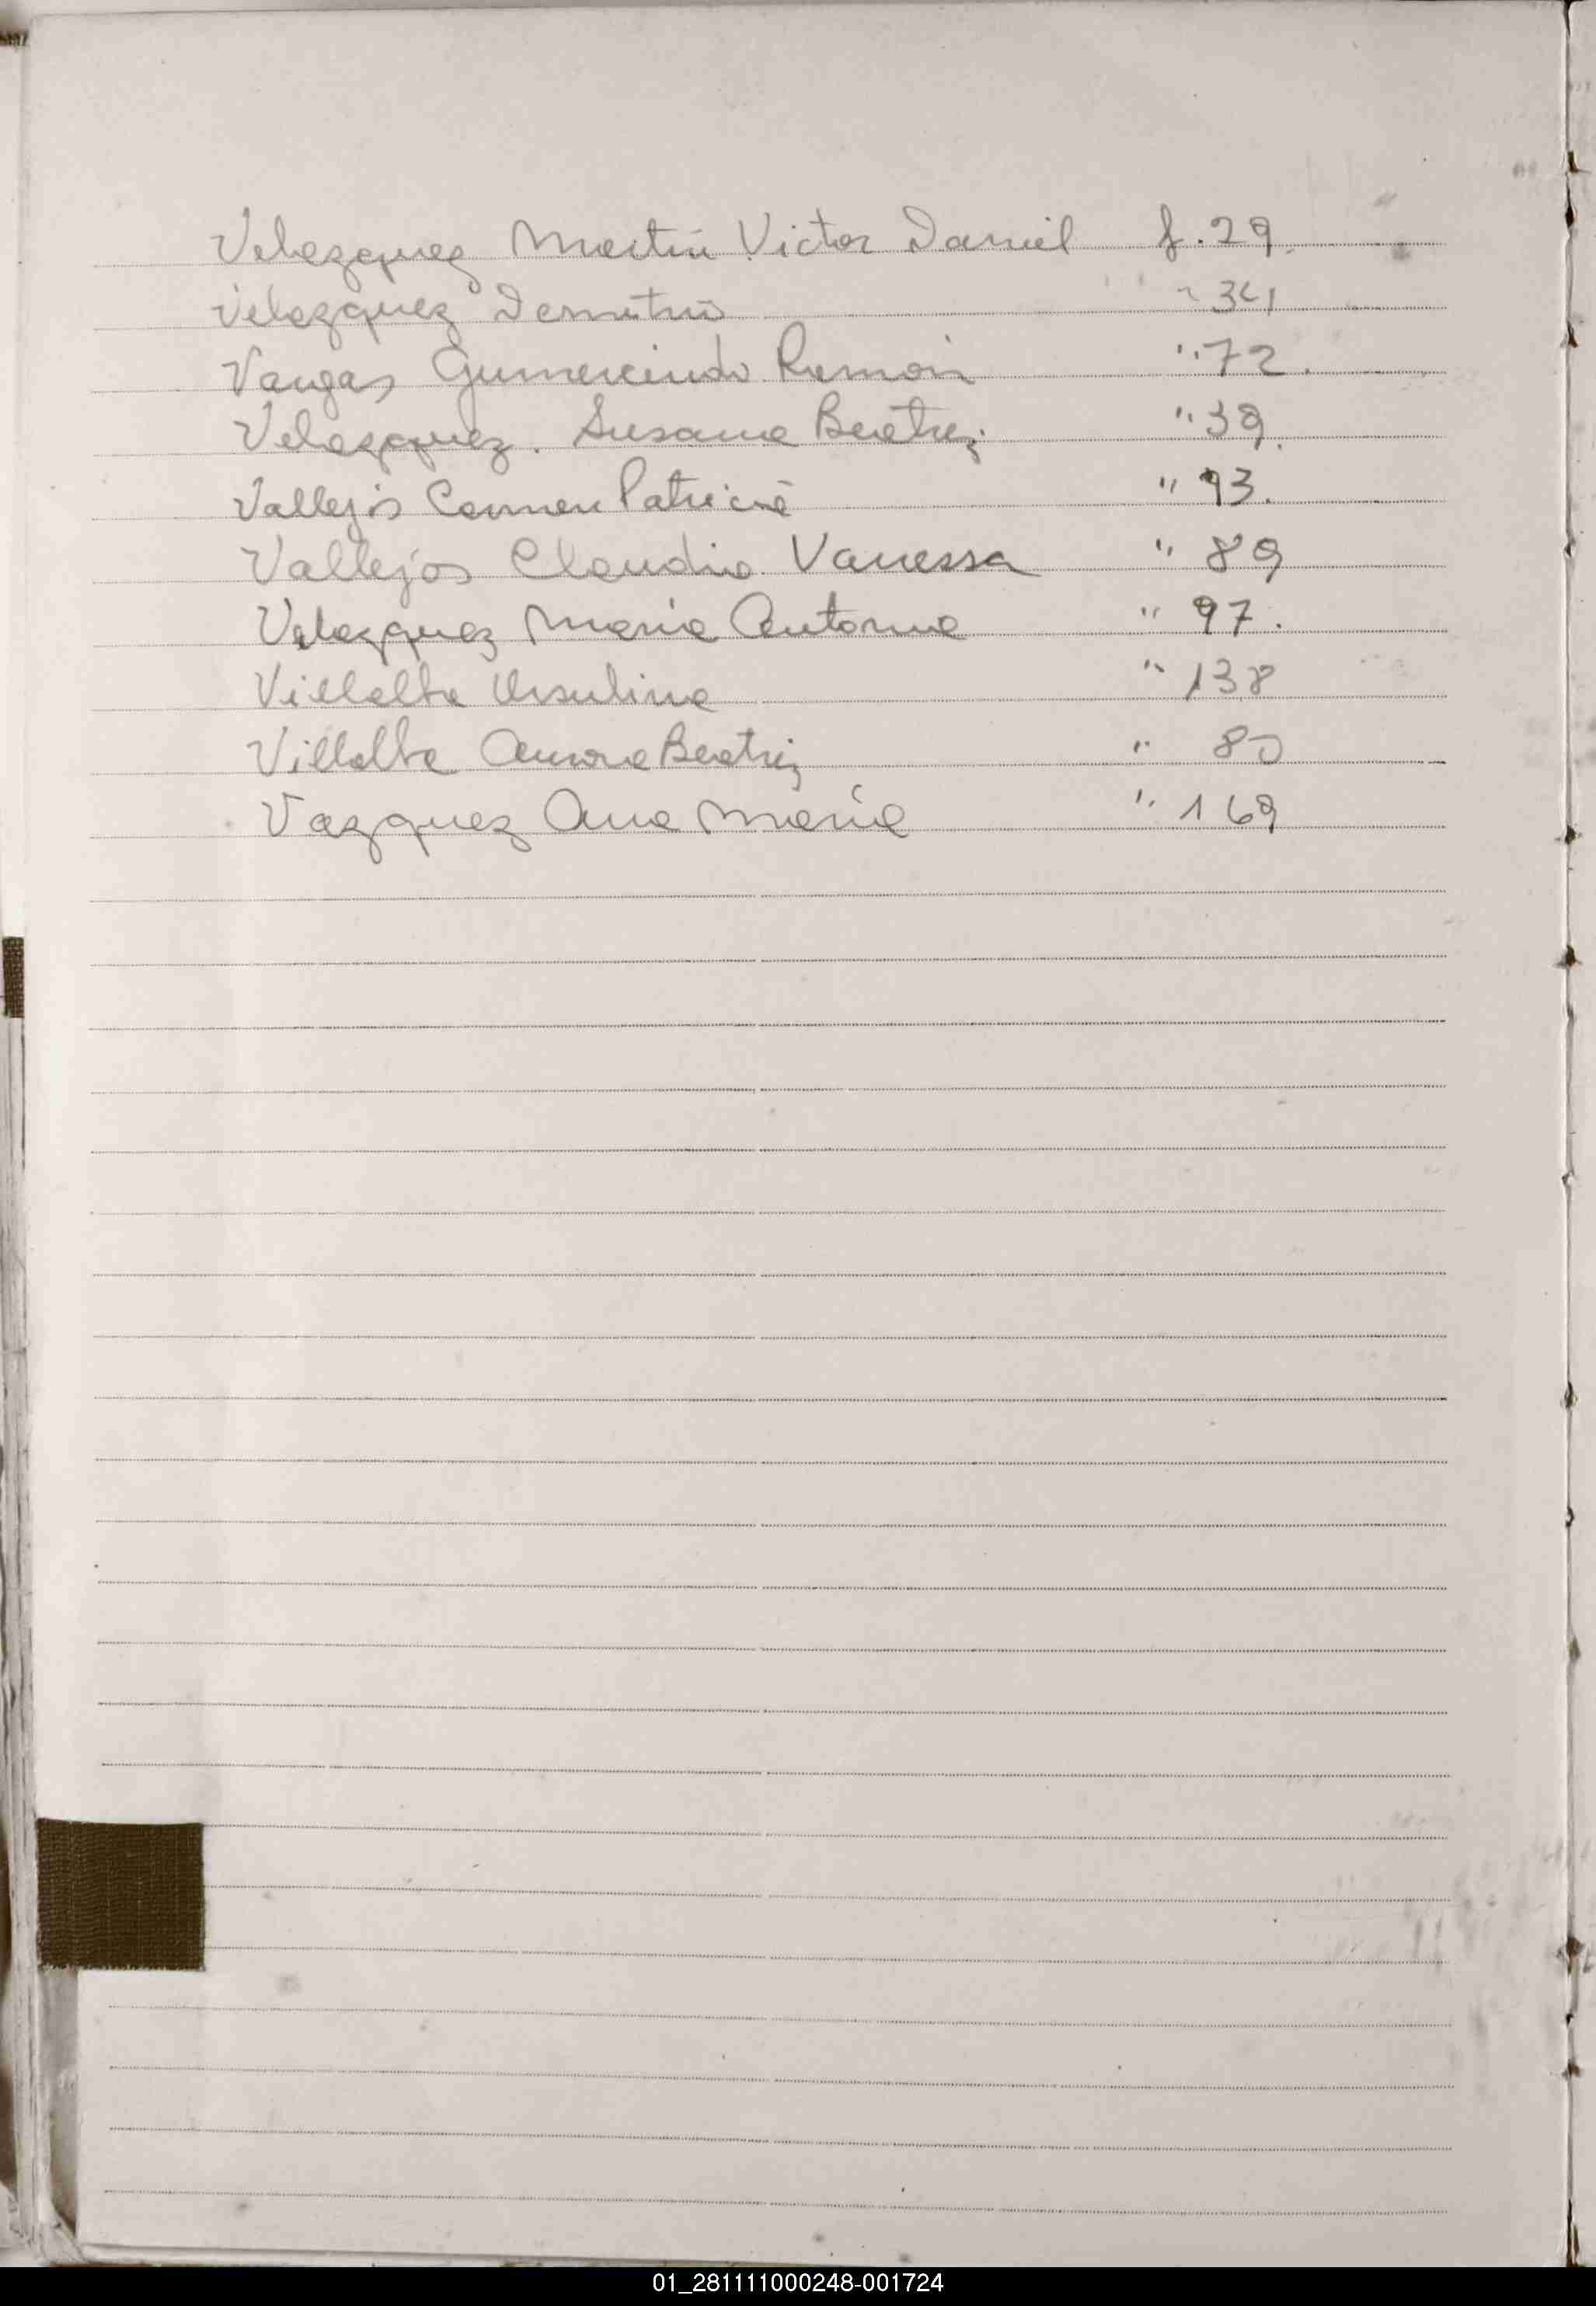 Velazquez Martin Victor Daniel f. 29.
Velazquez Demetrio " 34
Vargas Gumercindo Ramon " 72.
Velazquez. Susana Beatriz " 39.
Vallejos Carmen Patricia " 93.
Vallejos Claudia Vanessa " 89
Velazquez Maria Antonia " 97.
Villalba Ursulina " 138
Villalba Aurora Beatriz " 80
Vazquez Ana María " 169
01_281111000248-001724